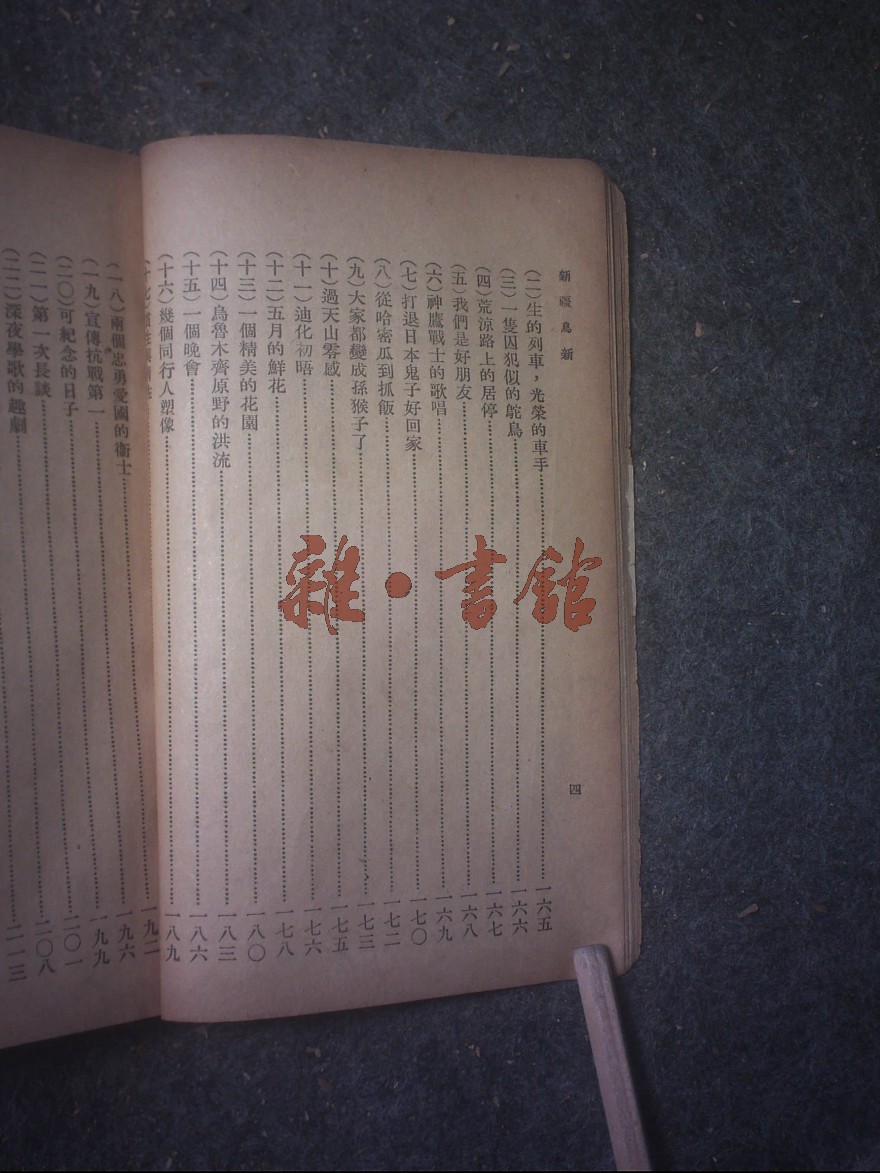 新疆鳥新
四
(二)生的列車，光榮的車手 一六五
(三)一隻囚犯似的鴕鳥 一六六
(四)荒涼路上的居停 一六七
(五)我們是好朋友 一六八
(六)神鷹戰士的歌唱 一六九
(七)打退日本鬼子好回家 一七〇
(八)從哈密瓜到抓飯 一七二
(九)大家都變成孫猴子了 一七三
(十)過天山零感 一七五
(十一)迪化初晤 一七六
(十二)五月的鮮花 一七八
(十三)一個精美的花園 一八〇
(十四)烏魯木齊原野的洪流 一八三
(十五)一個晚會 一八六
(十六)幾個同行人塑像 一八九
(十七) 一九二
(一八)兩個忠勇愛國的衞士 一九六
(一九)宣傳抗戰第一 一九九
(二〇)可紀念的日子 二〇一
(二一)第一次長談 二〇八
(二二)深夜學歌的趣劇 二一三
雜·書館